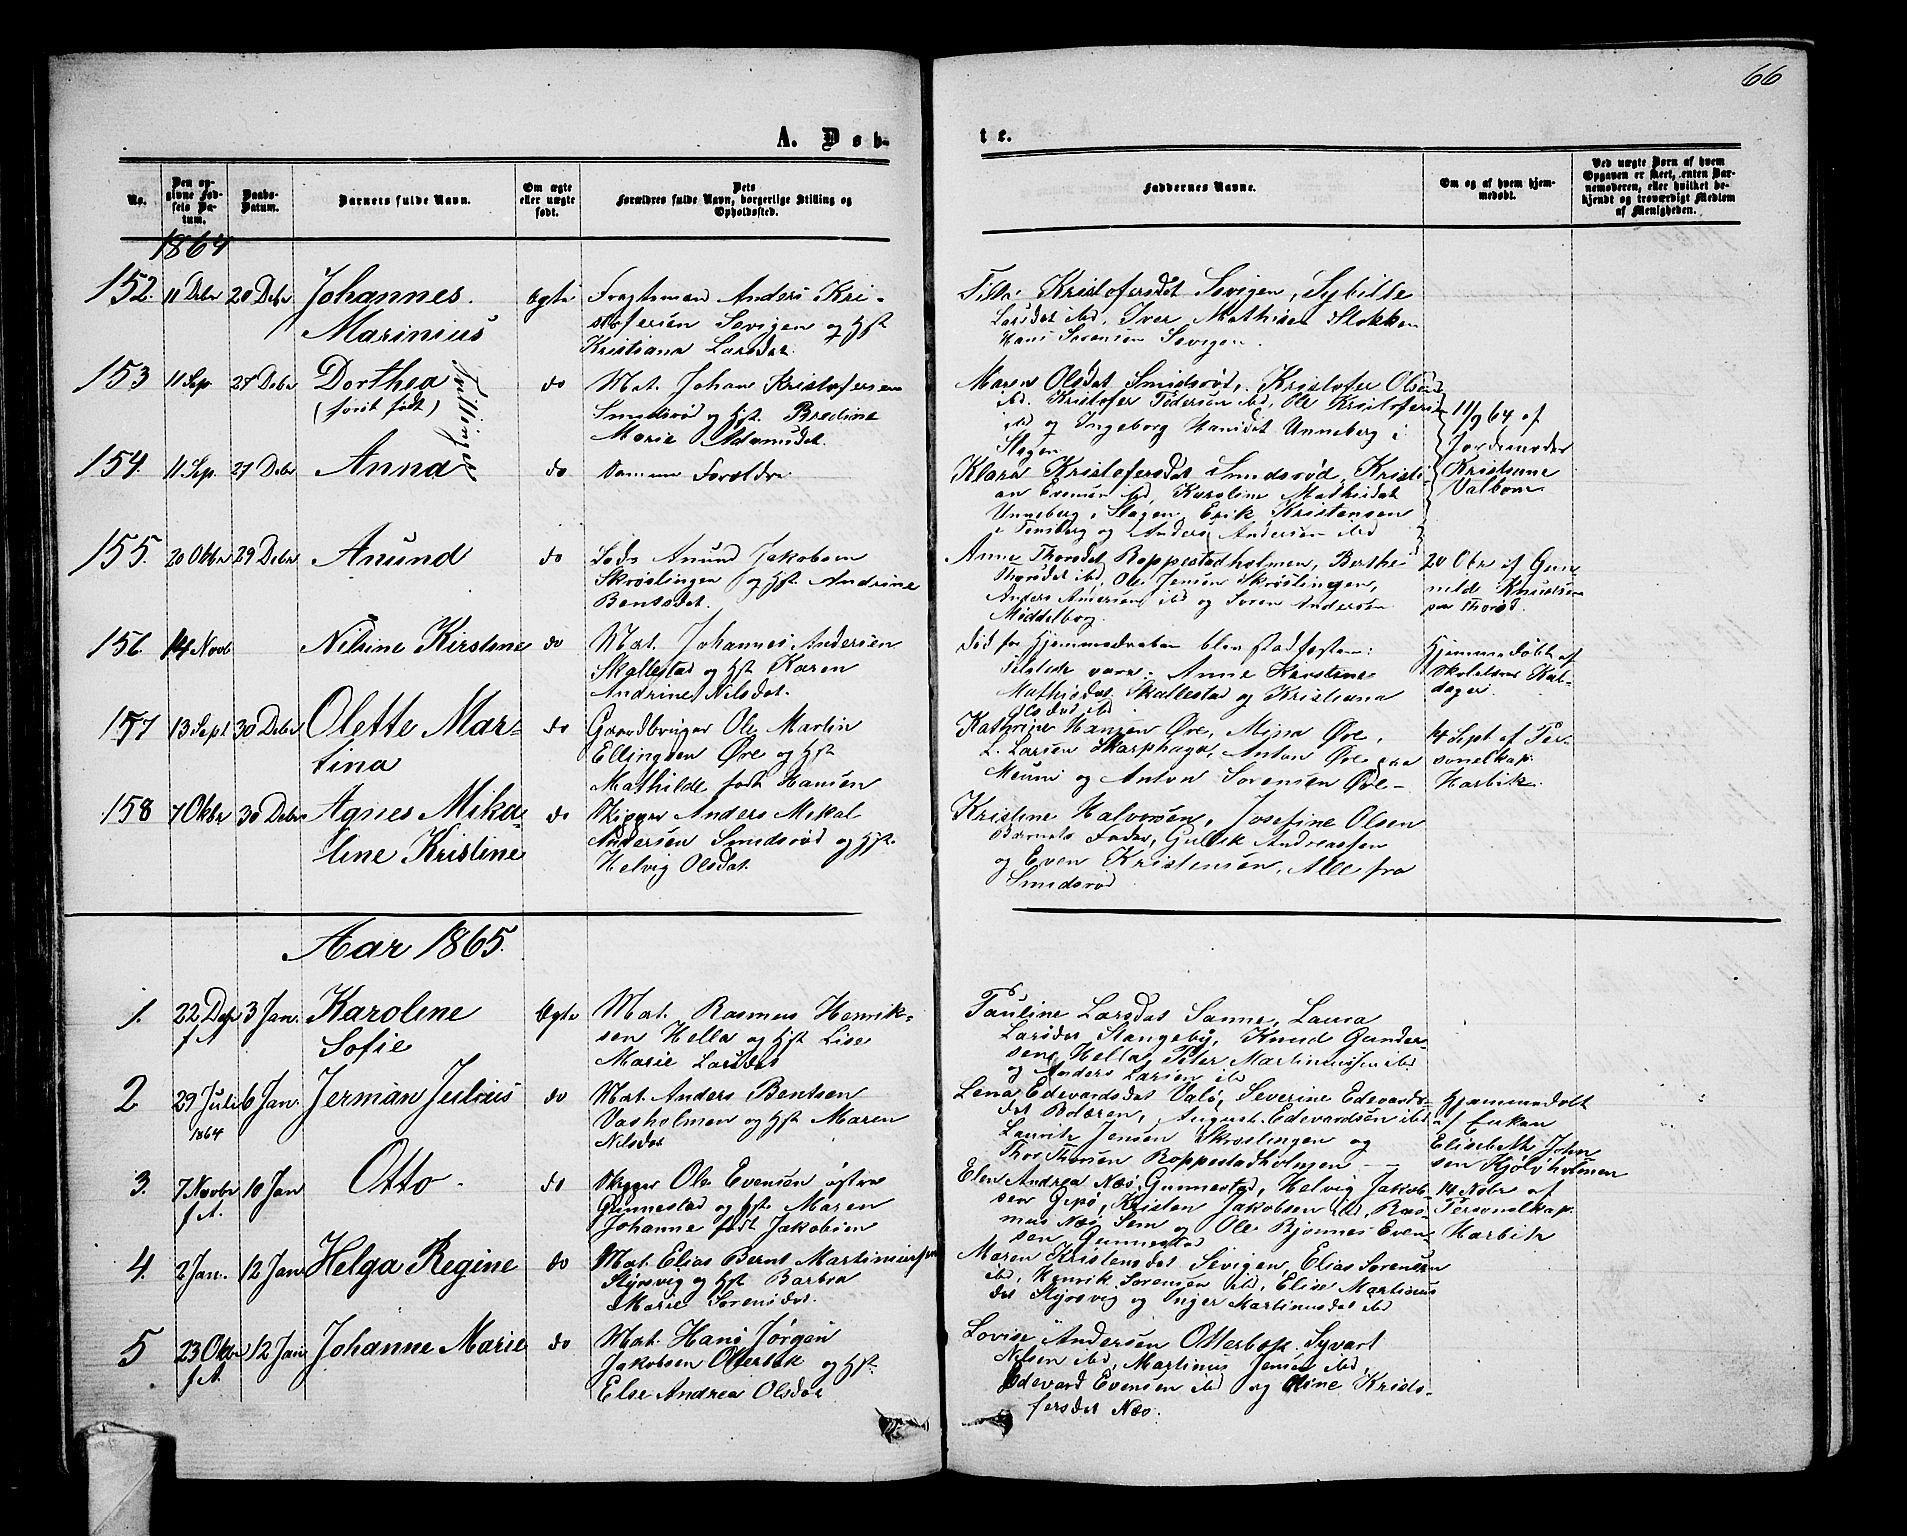 66
A. Døb-
te.
No.
Den op-
givne Fød-
sels Da-
tum.
Daabs-
Datum.
Barnets fulde Navn.
Om ægte
eller uægte
født.
Dets
Forældres fulde Navn, borgerlige Stilling og
Opholdssted.
Faddernes Navne.
Om og af hvem hjem-
medøbt.
Ved uægte Børn af hvem
Opgaven er skeet, enten Bar-
nemoderen, eller hvilket be-
kjendt og troværdigt Medlem
af Menigheden.
1864
152. 11 Debr 20 Debr Johannes
Marinius
Ægte
Fragtemand Anders Kri-
stofersen Sevigen og Hst
Kristiana Larsdat.
Kristofersdat Sevigen, Sybille
Larsdat ibd, Iver Mathisen Stokken
Hans Sørensen Sevigen.
153 11 Sep. 27 Debr Dorthea
(først født)
Tvillinger
do
Mat. Johan Kristofersen
Smidsrød og Hst Bredine
Marie Adamsdat.
Maren Olsdat Smidsrød, Kristofer Olsen
ibd. Kristofer Pedersen ibd, Ole Kristofersen
ibd og Ingeborg Hansdat Unneberg i
Slagen
11/9 64 af
Jordemoder
Kristiane
Valbom.
154. 11 Sep. 27 Debr Anna
do
Samme Forældre
Klara Kristofersdat Smidsrød, Kristi-
an Evensen ibd, Karoline Mathisdat
Unneberg i Slagen, Erik Kristensen
i Tønsberg og Anders Andersen ibd
155. 20 Okbr 29 Debr Anund
do
Lods Anund Jakobsen
Skrøslingen og Hst Andrine
Bentsdat.
Anne Thorsdat Roppestadholmen, Berthe
Thorsdat ibd, Ole Jensen Skrøslingen,
Anders Andersen ibd og Søren Andersen
Middelborg
20 Obr af Gun-
nilde Knudsen
paa Thorød.
156 14 Novb Nilsine Kirstine do
Mat. Johannes Andersen
Skallestad og Hst Karen
Andrine Nilsdat.
Død før Hjemmedaaben blev stadfæstet:
Tilstede vare: Anne Kristine
Mathisdat Skallestad og Kristiana
Olsdat ibd.
Hjemmedøbt af
Skolelærer Kal-
dager.
157 13 Sept 30 Debr Olette Mar-
tina
do
Gaardbruger Ole Martin
Ellingsen Øre og Hst
Mathilde født Hansen
Kathrine Hansen Øre, Mina Øre,
L. Larsen Skarphaga, Anton Øre paa
Meum og Anton Sørensen Øre-
14 Sept af Per-
sonelkap.
Harbitz.
158 7 Okbr 30 Debr Agnes Mika-
line Kristine
do
Skipper Anders Mikal
Andersen Smidsrød og Hst.
Helvig Olsdat.
Kristine Halvorsen, Josefine Olsen
Barnets Fader, Gulek Andreassen
og Even Kristensen, Alle fra
Smidsrød
Aar 1865.
1. 22 Dec 3 Jan. Karoline
f A
Sofie
Ægte
Mat. Rasmus Henrik-
sen Hella og Hst Lise
Marie Larsdat
Pauline Larsdat Sanne, Laura
Larsdat Stangeby, Knud Gunder-
sen Hella, Peter Martinussen ibd
og Anders Larsen ibd
2 29 Juli 6 Jan. Jerman Julius
1864
do
Mat. Anders Bentsen
Vasholmen og Hst Maren
Nilsdat
Lena Edevardsdat Valø, Severine Edevards-
dat Bolæren, August Edevardsen ibd
Lauritz Jensen Skrøslingen og
Thor Thorsen Roppestadholmen
Hjemmedøbt
af Enken
Elisabeth John-
sen Kjøløholmen
3. 7 Novbr 10 Jan Otto
f. A.
do
Skipper Ole Evensen østre
Gunnestad og Hst Maren
Johanne født Jakobsen
Elen Andrea Næs, Gunnestad, Helvig Jakob-
sen Gipø, Kristen Jakobsen ibd, Ras-
mus Næs Sem og Ole Bjønnes Even-
sen Gunnestad
14 Nobr af
Personelkap.
Harbitz
4. 2 Jan. 12 Jan Helga Regine do
Mat. Elias Bernt Martiniussen
Styrsvig og Hst Barbra
Marie Sørensdat.
Maren Kristensdat Sevigen, Elias Sørensen
ibd, Henrik Sørensen ibd, Elise Martinus
dat Styrsvig og Inger Martinusdat ibd
5 23 Okbr 12 Jan Johanne Marie do
f A.
Mat. Hans Jørgen
Jakobsen Otterbæk og Hst.
Else Andrea Olsdat
Lovise Andersen Otterbæk, Syvart
Nilsen ibd, Martinus Jensen ibd,
Edevard Evensen ibd og Oline Kristo-
fersdat Næs.